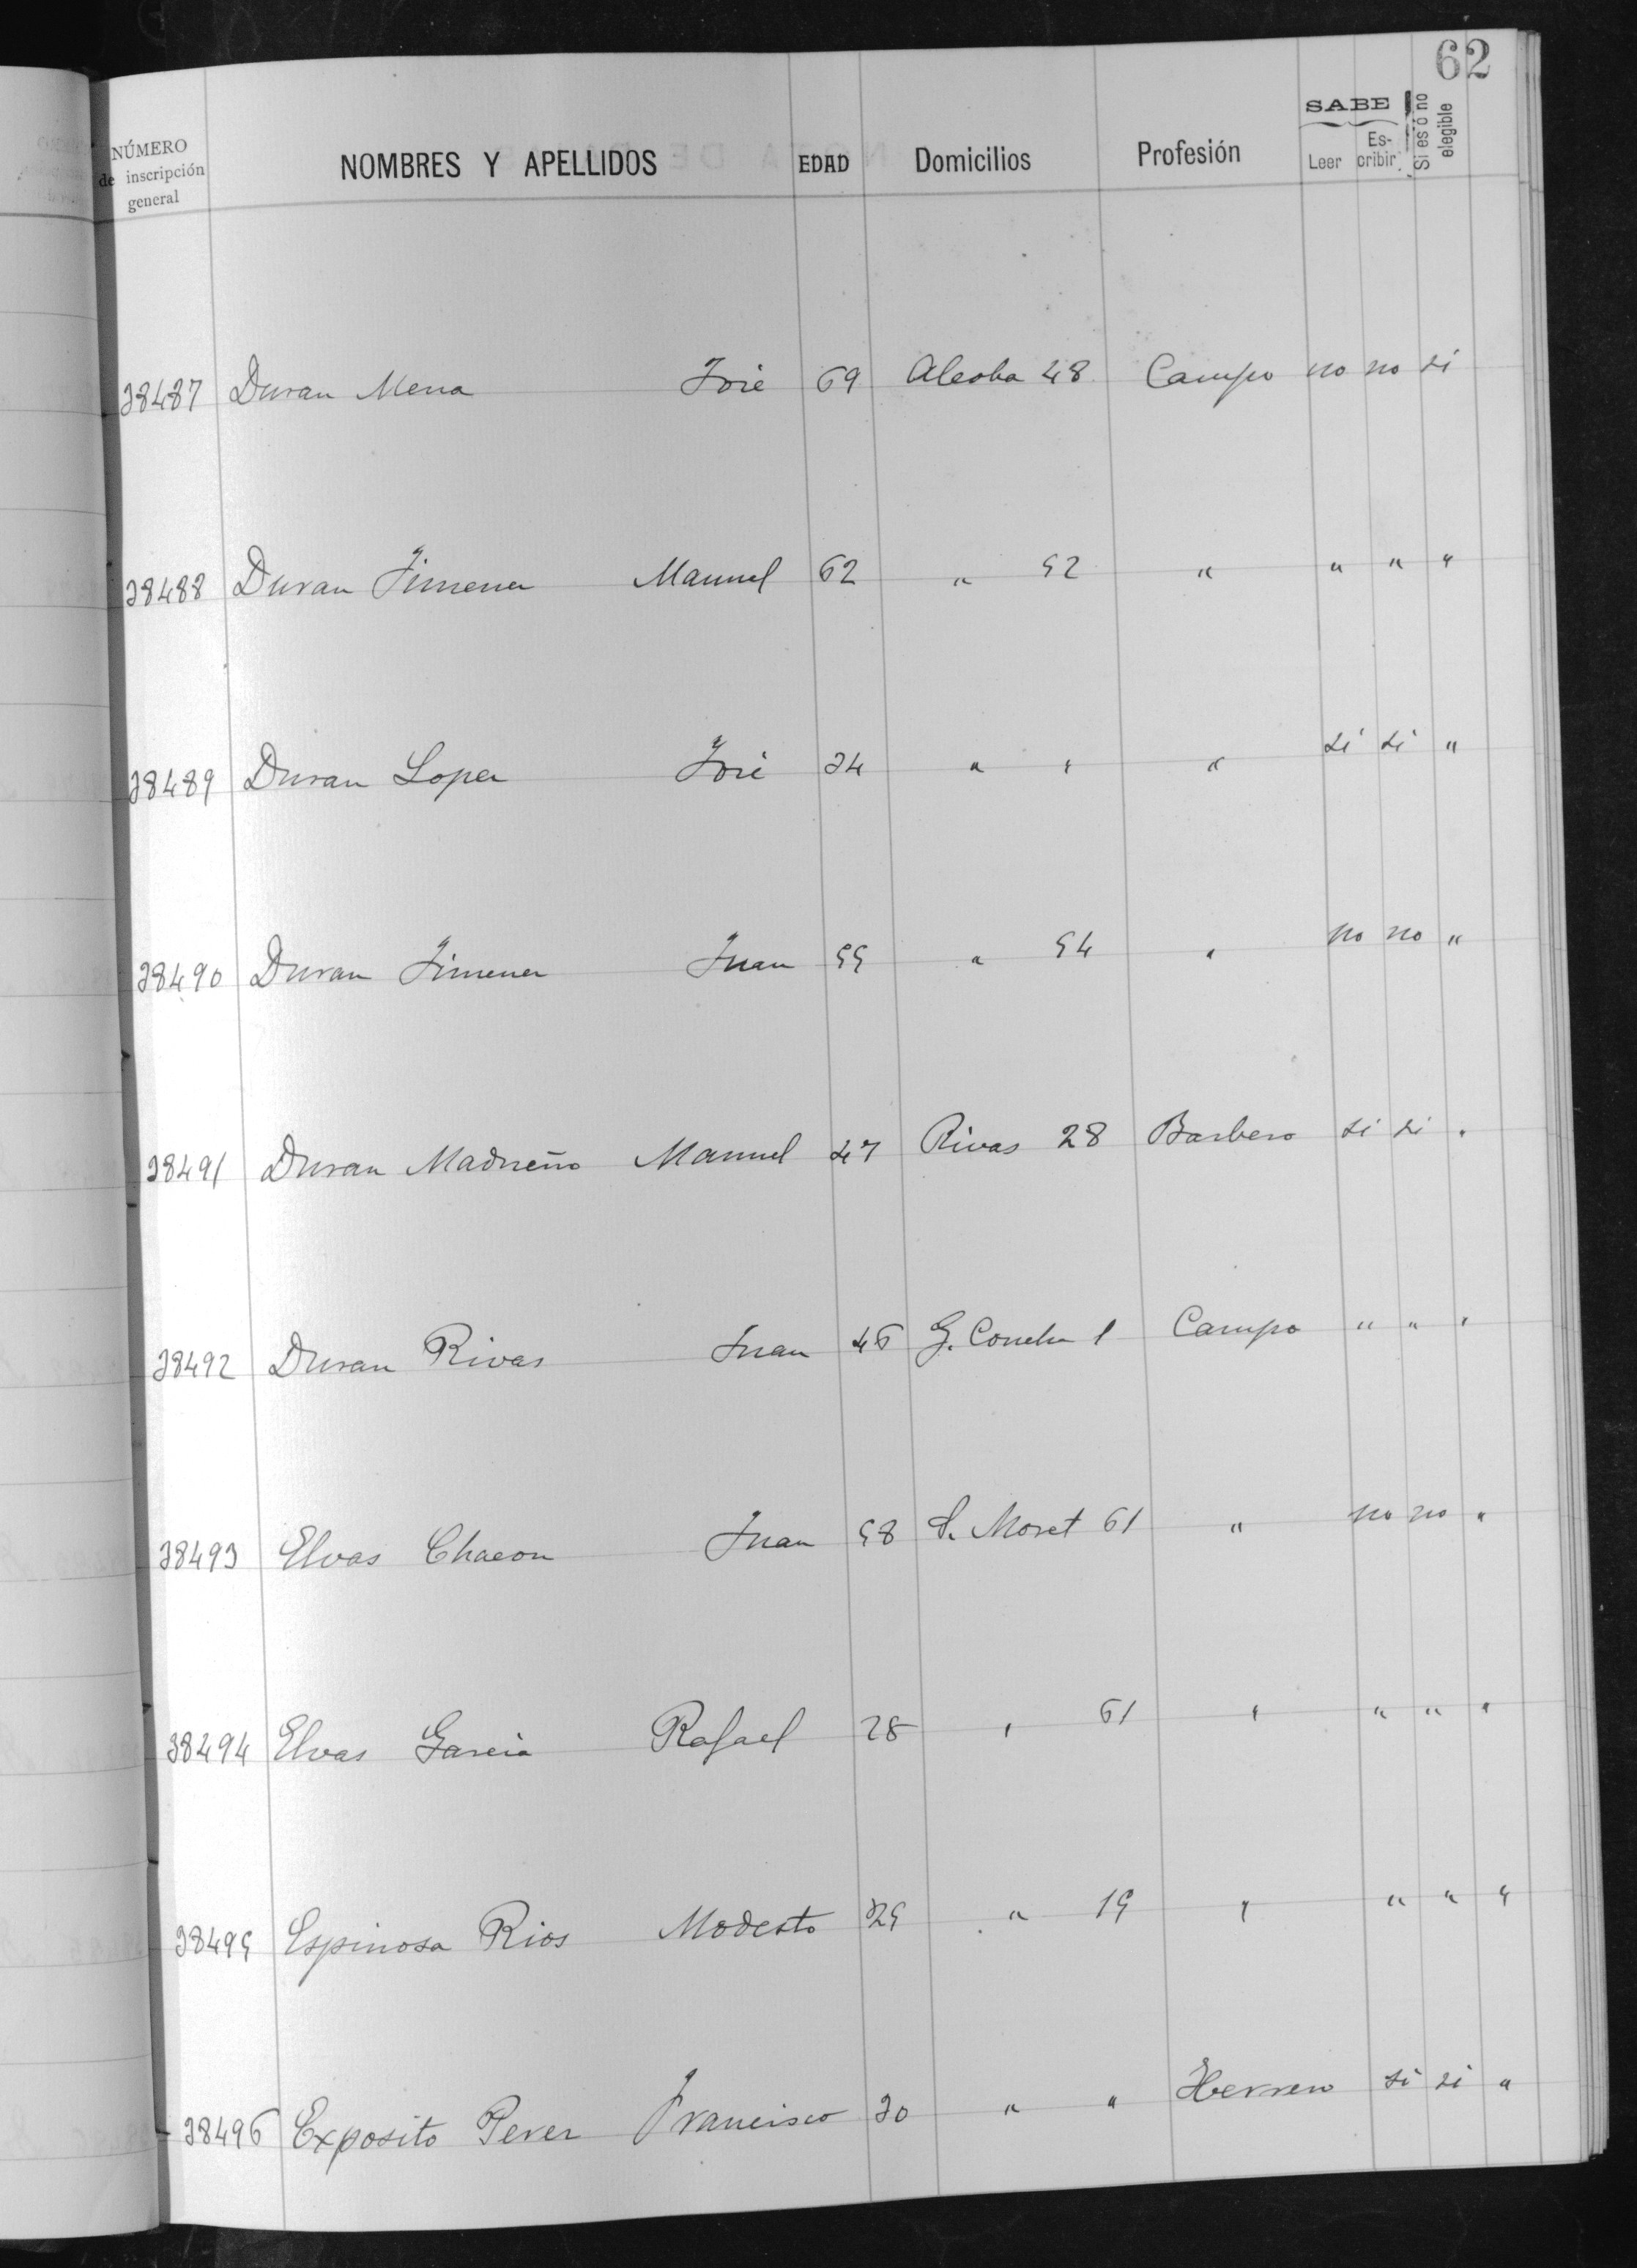 62
NÚMERO de inscripción general NOMBRES Y APELLIDOS EDAD Domicilios Profesión SABE Leer Es-cribir Si es ó no elegible
38487 Duran Mena José 69 Alcoba 48 Campo no no si
38488 Duran Jimenez Manuel 62 " 52 " " " "
38489 Duran Lopez José 34 " " " si si "
38490 Duran Jimenez Juan 55 " 54 " no no "
38491 Duran Madueño Manuel 47 Rivas 28 Barbero si si "
38492 Duran Rivas Juan 46 G. Concha 1 Campo " " "
38493 Elvas Chacon Juan 58 S. Moret 61 " no no "
38494 Elvas Garcia Rafael 28 " 61 " " " "
38495 Espinosa Rios Modesto 25 " 15 " " " "
38496 Exposito Perez Francisco 30 " " Herrero si si "